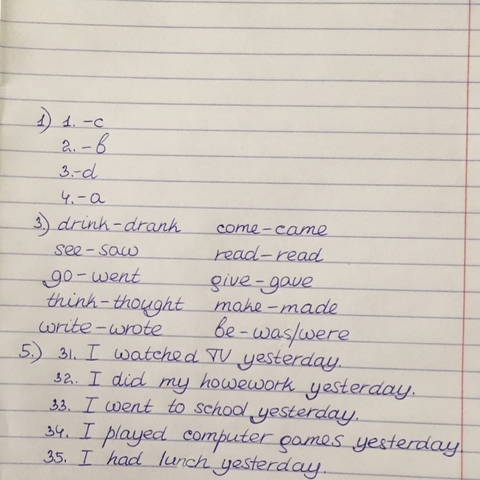 1) 1. -c
2. -b
3. -d
4. -a
3) drink-drank come-came
see-saw read-read
go-went give-gave
think-thought make-made
write-wrote be-was/were
5.) 31. I watched TV yesterday.
32. I did my howework yesterday.
33. I went to school yesterday.
34. I played computer games yesterday.
35. I had lunch yesterday.